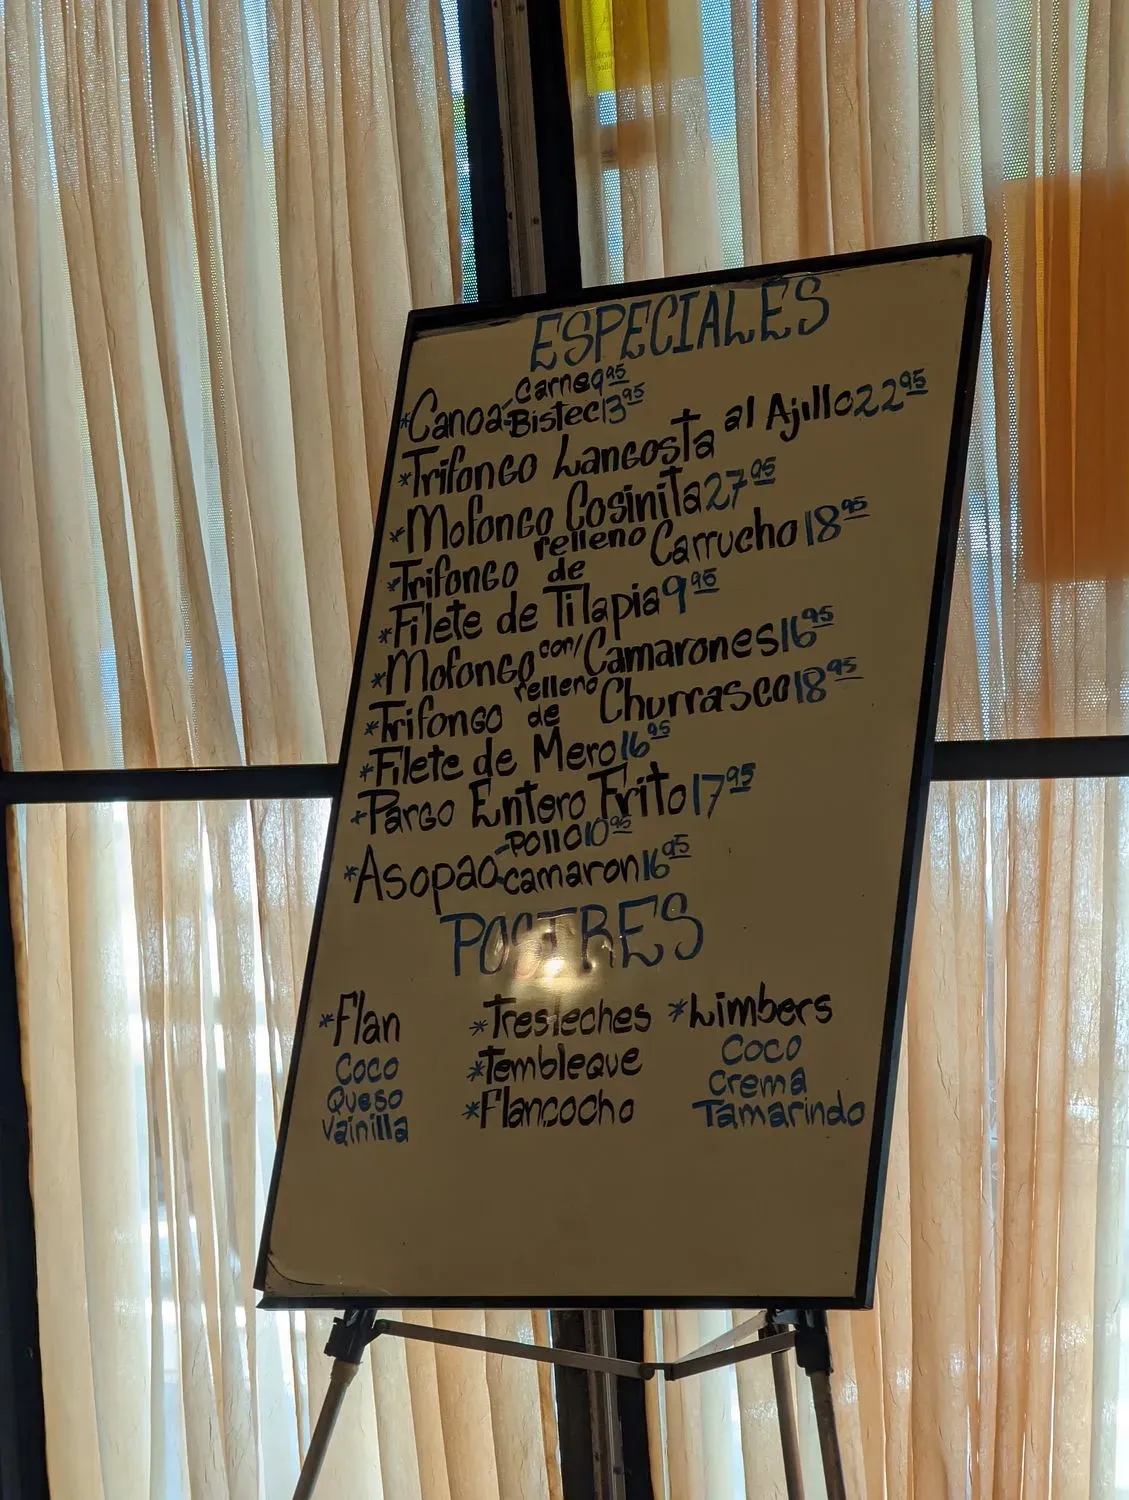 ESPECIALES
*Canoa-Carne 9.95
-Bistec 13.95
*Trifongo Langosta al Ajillo 22.95
*Mofongo Cosinita 27.95
*Trifongo relleno de Carrucho 18.95
*Filete de Tilapia 9.95
*Mofongo con/Camarones 16.95
*Trifongo relleno de Churrasco 18.95
*Filete de Mero 16.95
*Pargo Entero Frito 17.95
*Asopao-Pollo 10.95
-camaron 16.95
POSTRES
*Flan
Coco
Queso
Vainilla
*Tresleches
*Tembleque
*Flancocho
*Limbers
Coco
Crema
Tamarindo